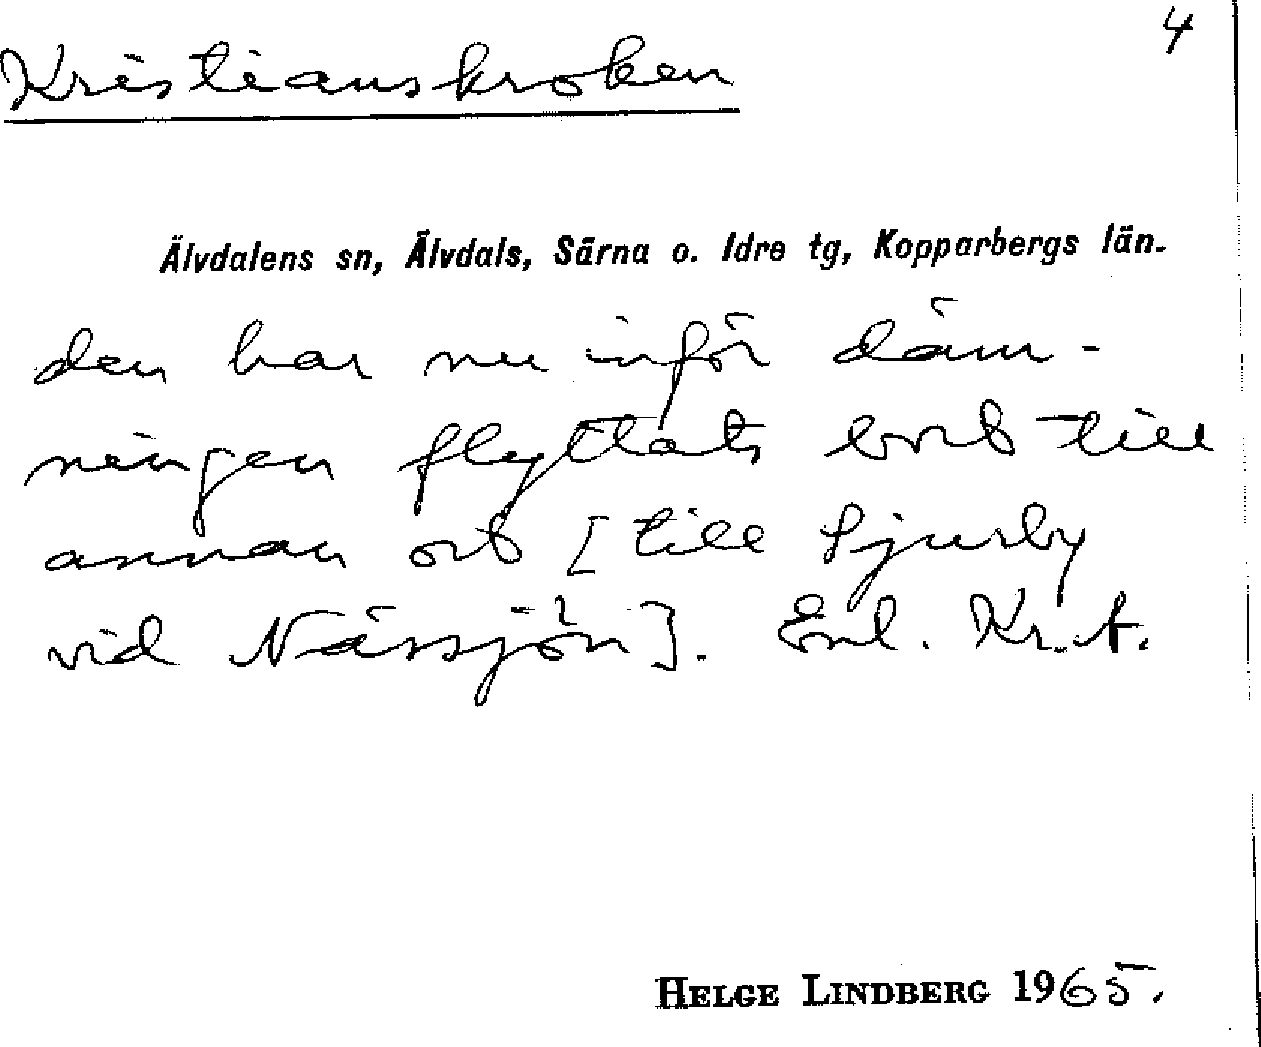 4
Kristianskroken
Älvdalens sn, Älvdals, Särna o. Idre tg, Kopparbergs län.
den har nu inför däm-
ningen flyttats bort till
annan ort [till Ljurby
vid Nässjön]. Enl. Kr. A.
HELGE LINDBERG 1965.